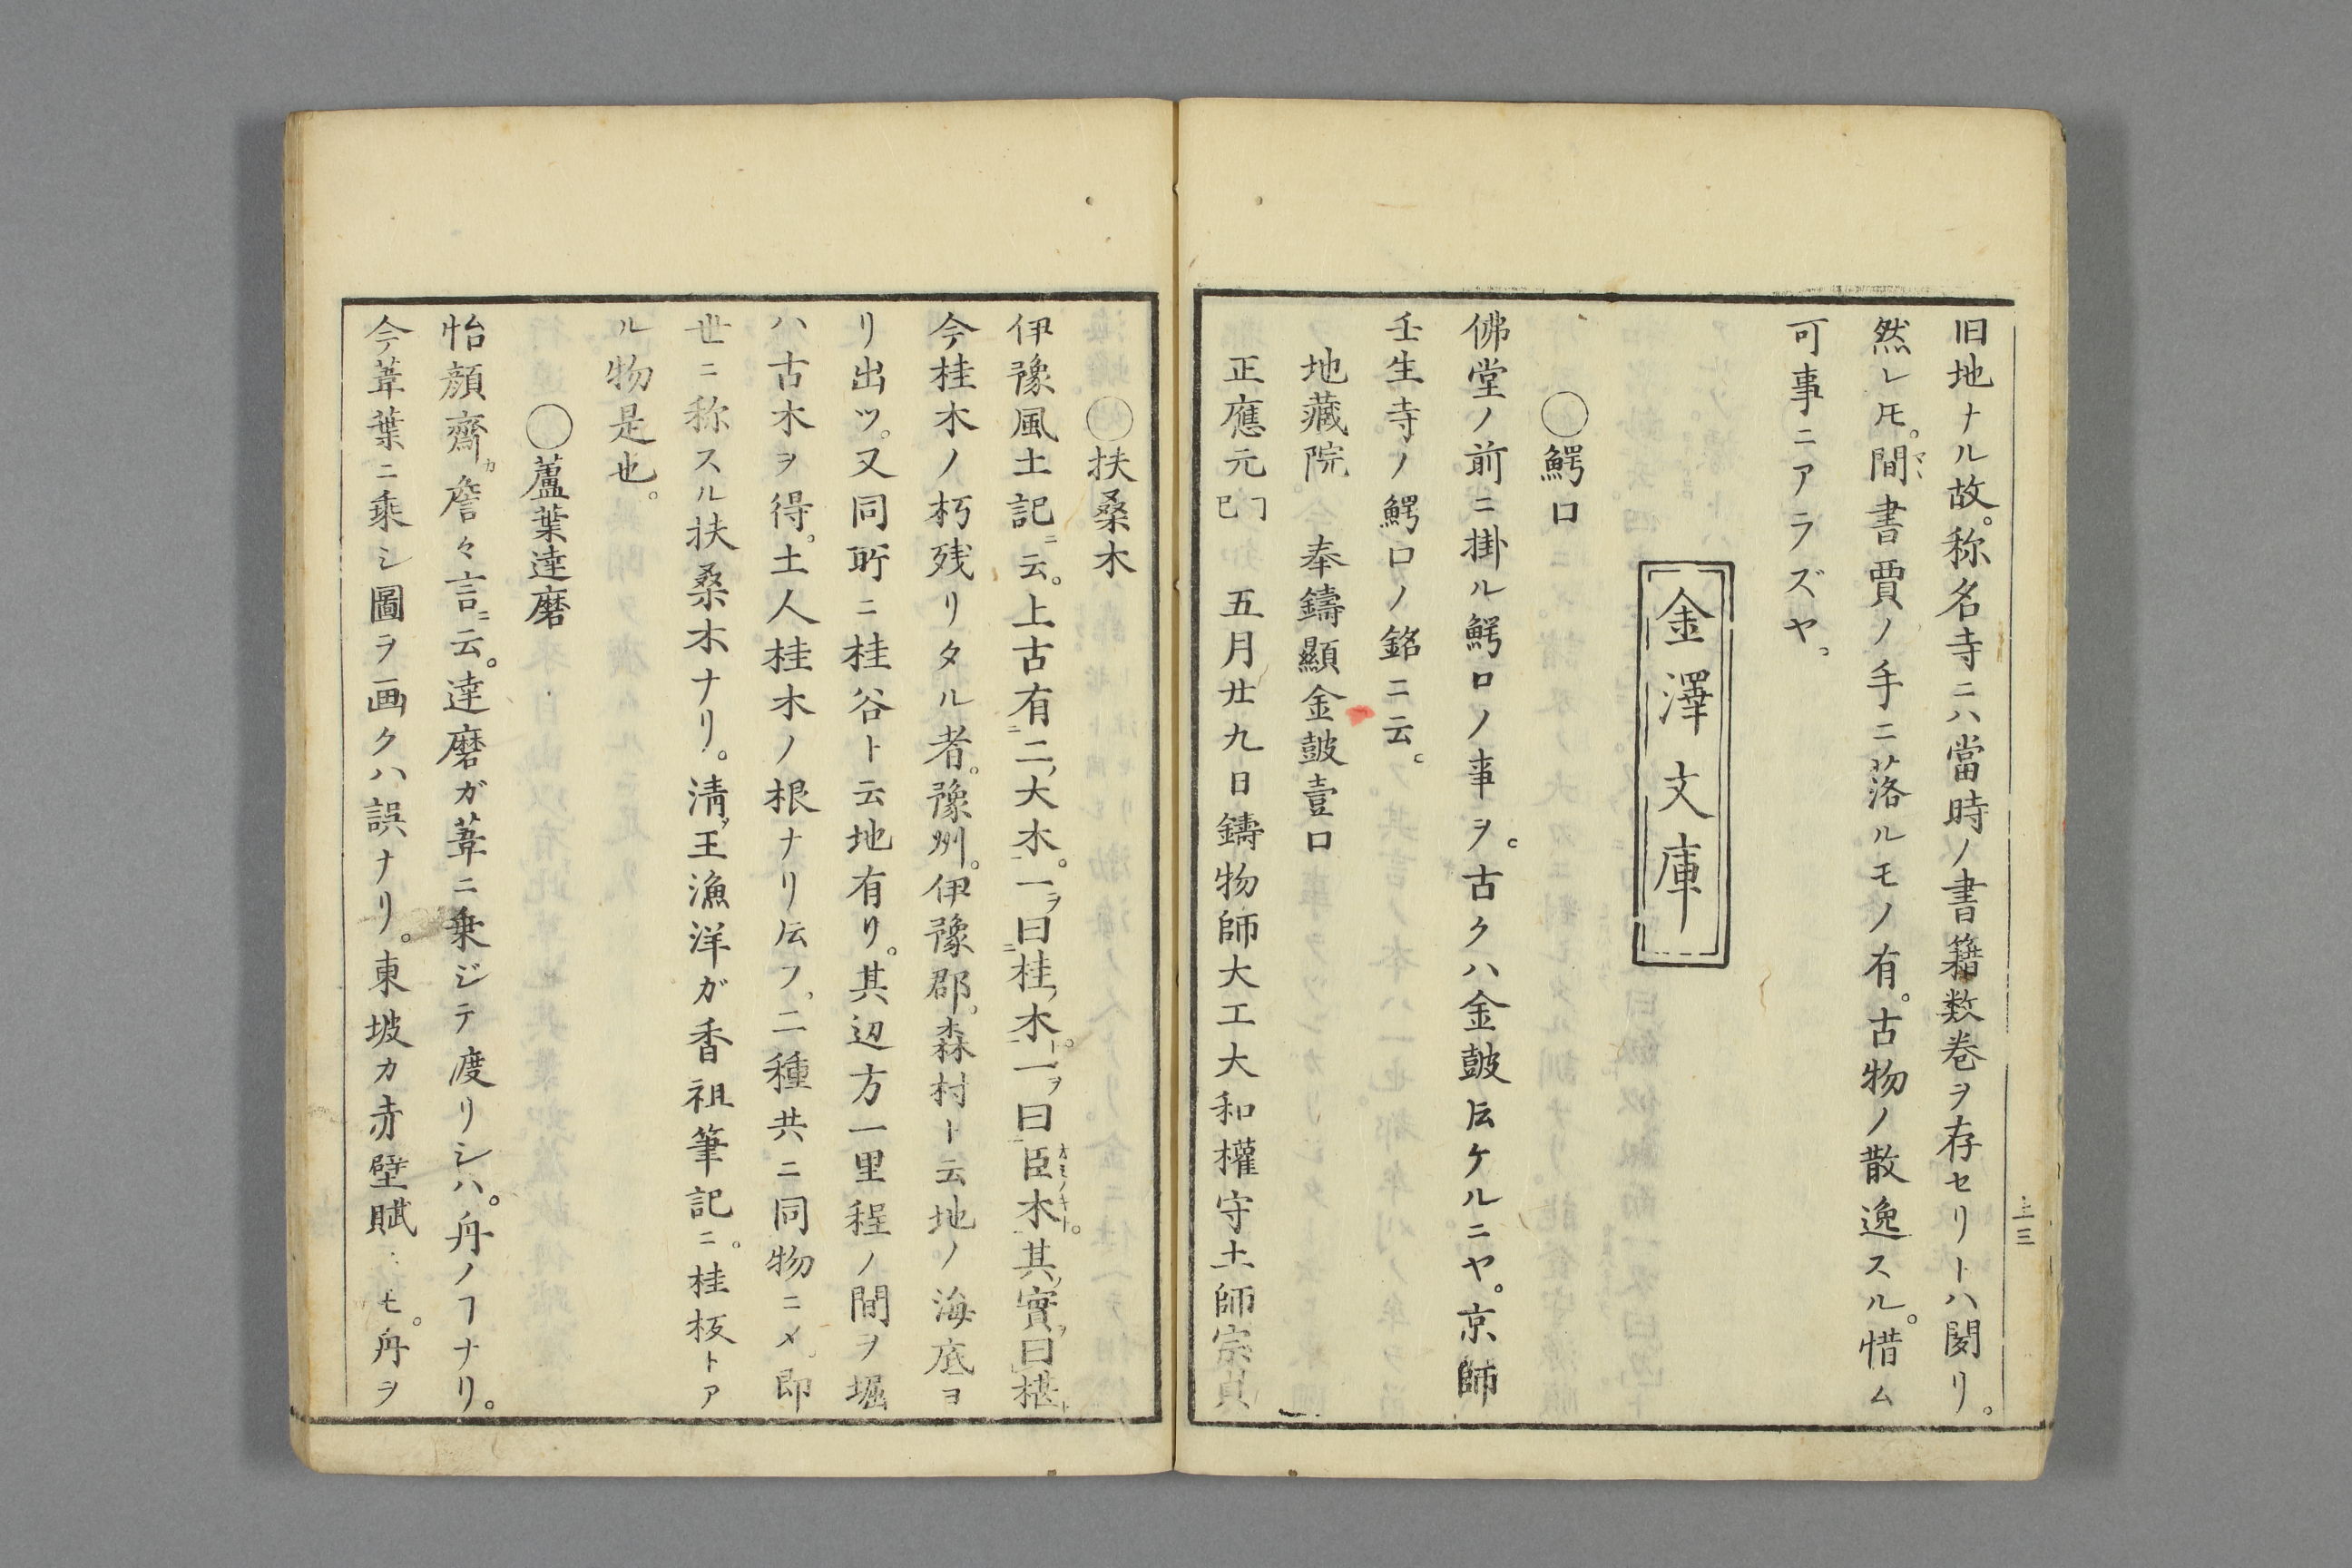 旧地ナル故。称名寺ニハ當時ノ書籍数巻ヲ存セリトハ聞リ。
然レ𪜈。間書賈ノ手ニ落ルモノ有。古物ノ散逸スル。惜ム
可事ニアラズヤ。
金澤文庫
〇鰐口
佛堂ノ前ニ掛ル鰐口ノ事ヲ。古クハ金皷㕝ケルニヤ。京師
壬生寺ノ鰐口ノ銘ニ云。
地藏院 奉鑄顯金皷壹口
正應元 五月廿九日鑄物師大工大和權守土師宗貞
上三
〇扶桑木
伊豫風土記ニ云。上古有ニ二ノ大木。一ヲ曰ニ桂ノ木ト。一ヲ曰臣木ト。其ノ實ヲ曰椹ト
今桂木ノ朽残リタル者。豫州。伊豫郡。森村ト云地ノ海底ヨ
リ出ツ。又同所ニ桂谷ト云地有リ。其辺方一里程ノ間ヲ堀
ハ古木ヲ得。土人桂木ノ根ナリ伝フ。二種共ニ同物ニメ。即
世ニ称スル扶桑木ナリ。清ノ王漁洋ガ香祖筆記ニ。桂板トア
ル物是也。
〇蘆葉達磨
怡顔齋カ詹々言ニ云。達磨ガ葦ニ乗ジテ度リシハ。舟ノヿナリ。
今葦葉ニ乗シ圖ヲ画クハ誤ナリ。東坡カ赤壁賦モ。舟ヲ